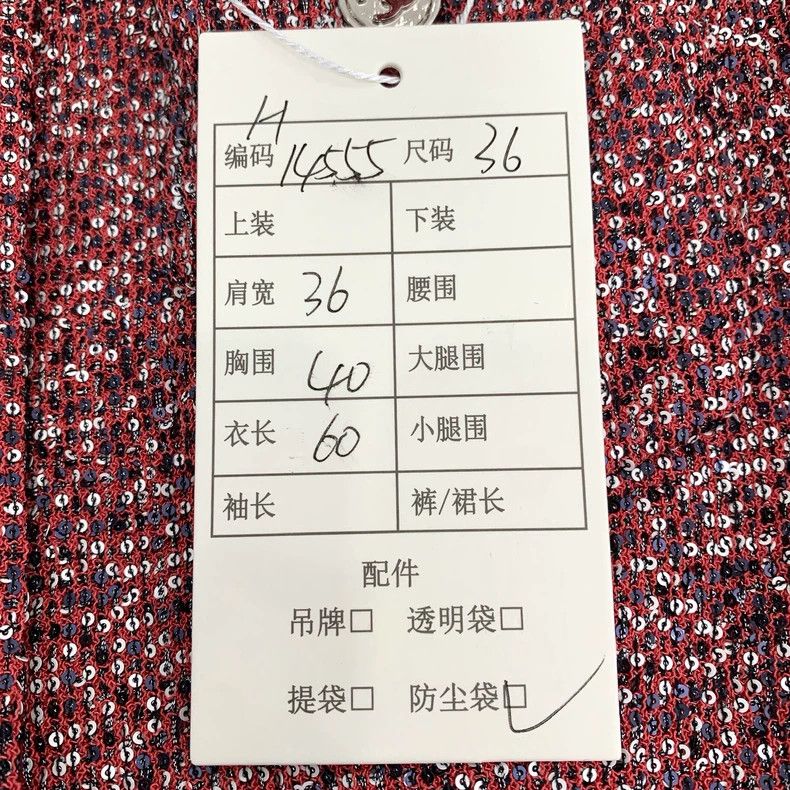 H
编码 14555 尺码 36
上装 下装
肩宽 36 腰围
胸围 40 大腿围
衣长 60 小腿围
袖长 裤/裙长
配件
吊牌□ 透明袋□
提袋□ 防尘袋☑